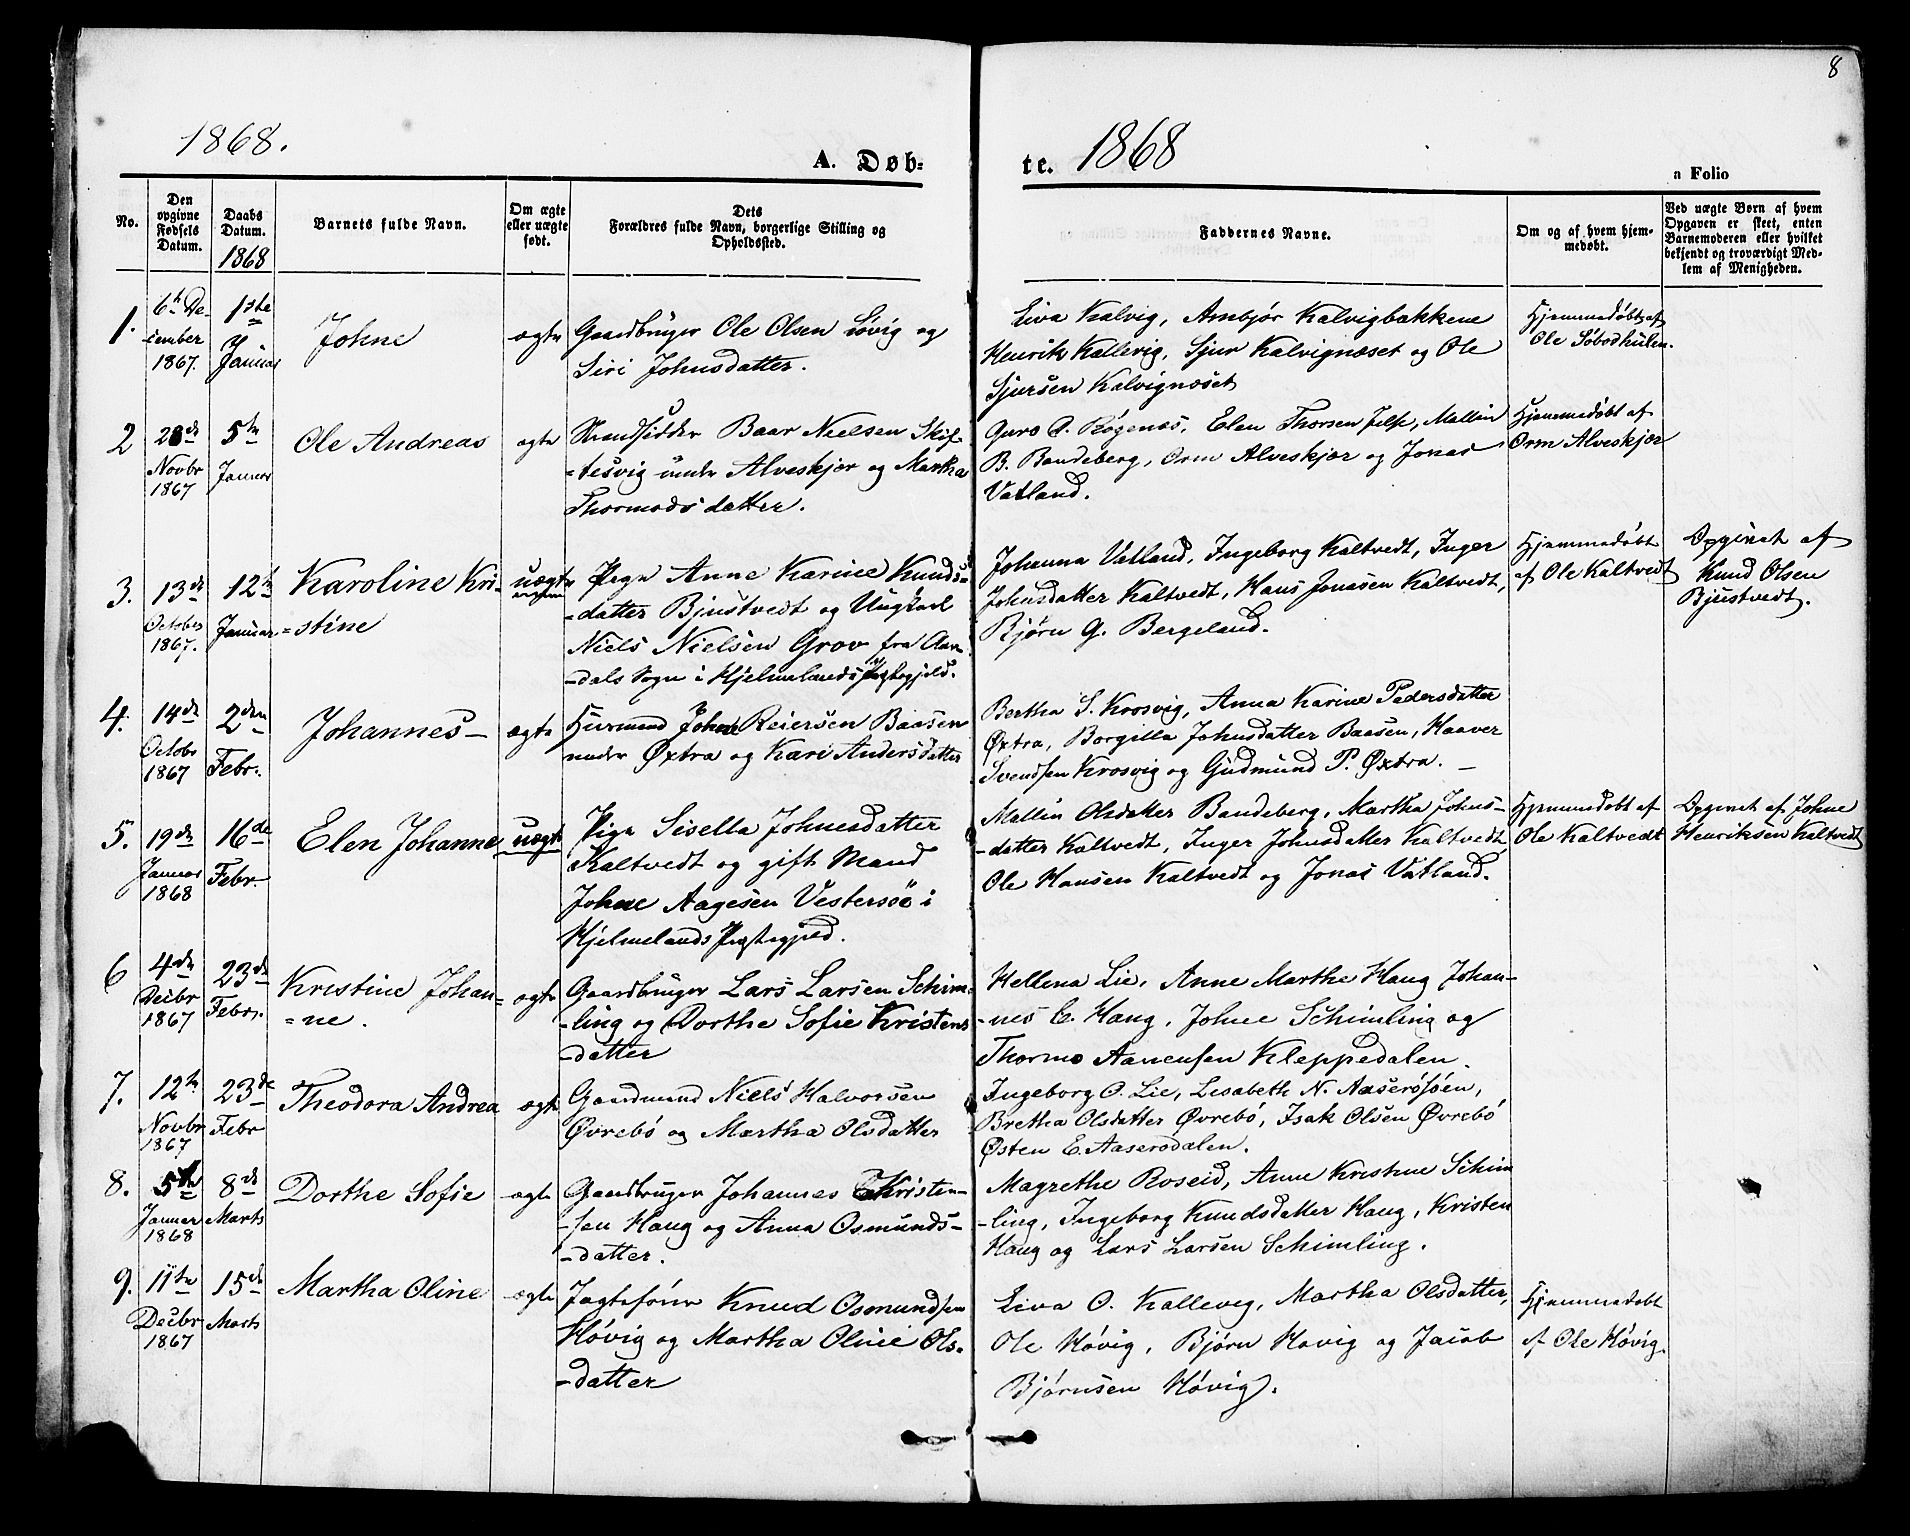 8
1868.
A. Døb-
te. 1868
a Folio
No.
Den opgivne Fødsels Datum.
Daabs Datum. 1868
Barnets fulde Navn.
Om ægte eller uægte født.
Dets Forældres fulde Navn, borgerlige Stilling og Opholdssted.
Faddernes Navne.
Om og af hvem hjemmedøbt.
Ved uægte Børn af hvem Opgaven er skeet, enten Barnemoderen eller hvilket bekjendt og troværdigt Medlem af Menigheden.
1.
6te De-
cember
1867.
1ste
Januar
Johne
ægte
Gaardbruger Ole Olsen Løvig og
Siri Johnsdatter.
Liva Kalvig, Ambjør Kalvigbakkene
Henrik Kallevig, Sjur Kalvignæset og Ole
Sjursen Kalvignæset
Hjemmedøbt af
Ole Søbodhulen.
2
28de
Novbr
1867
5te
Januar
Ole Andreas
ægte
Strandsidder Baar Nielsen Skif-
-tesvig under Alveskjær og Martha
Thormodsdatter.
Guro O. Røgenæs, Elen Thorsen, Mallin
B. Bandeberg, Orm Alveskjær og Jonas
Vatland.
Hjemmedøbt af
Orm Alveskjær
3.
13de
October
1867.
12te
Januar
Karoline Kri-
=stine
uægte
Pige Anne Karine Knuds-
-datter Bjustvedt og Ungkarl
Niels Nielsen Grov fra Aar-
-dals Sogn i Hjelmelands Prgtegjeld.
Johanna Vatland, Ingeborg Kaltvedt, Inger
Johnsdatter Kaltvedt, Hans Jonasen Kaltvedt,
Bjørn G. Bergeland.
Hjemmedøbt
af Ole Kaltvedt
Opgivet af
Knud Olsen
Bjustvedt.
4.
14de
Octobr
1867
2den
Febr.
Johannes
ægte
Huusmand Johne Reiersen Baasen
under Øxtra og Kari Andersdatter
Bertha S. Krosvig, Anna Karine Pedersdatter
Øxtra, Borgilla Johnsdatter Baasen, Haaver
Svendsen Krosvig og Gudmund P. Øxtra.
5.
19de
Januar
1868
16de
Febr.
Elen Johanne
uægte
Pige Sisella Johnesdatter
Kaltvedt og gift Mand
Johne Aagesen Vestersöe i
Hjelmelands Prgtegjeld.
Mallin Olsdatter Bandeberg, Martha Johns-
-datter Kaltvedt, Inger Johnsdatter Kaltvedt,
Ole Hansen Kaltvedt og Jonas Vatland.
Hjemmedøbt af
Ole Kaltvedt
Opgivet af Johne
Henriksen Kaltvedt
6
4de
Decbr
1867
23de
Febr.
Kristine Johan-
=ne.
ægte
Gaardbruger Lars Larsen Schim-
-ling og Dorthe Sofie Kristens
-datter
Hellena Lie, Anne Marthe Haug Johan-
-nes C. Haug, Johne Schimling og
Thormo Aanensen Kleppedalen.
7.
12te
Novbr
1867
23de
Febr
Theodora Andrea
ægte
Gaardmand Niels Halvorsen
Øvrebø og Martha Olsdatter
Ingeborg O. Lie, Lisabeth N. Aaserøsøen,
Bretha Olsdatter Øvrebø, Isak Olsen Øvrebø
Østen E. Aaserodalen.
8.
5te
Januar
1868
8de
Marts
Dorthe Sofie
ægte
Gaardbruger Johannes Kristen-
-sen Haug og Anna Osmunds-
-datter.
Magrethe Roseid, Anne Kristine Schim
-ling, Ingeborg Knudsdatter Haug, Kristen
Haug og Lars Larsen Schimling.
9.
11te
Decbr
1867
15de
Marts
Martha Oline
ægte
Jagtefører Knud Osmundsen
Høvig og Martha Oline Ols-
-datter
Liva O. Kallevig, Martha Olsdatter,
Ole Høvig, Bjørn Høvig og Jacob
Bjørnsen Høvig.
Hjemmedøbt
af Ole Høvig.